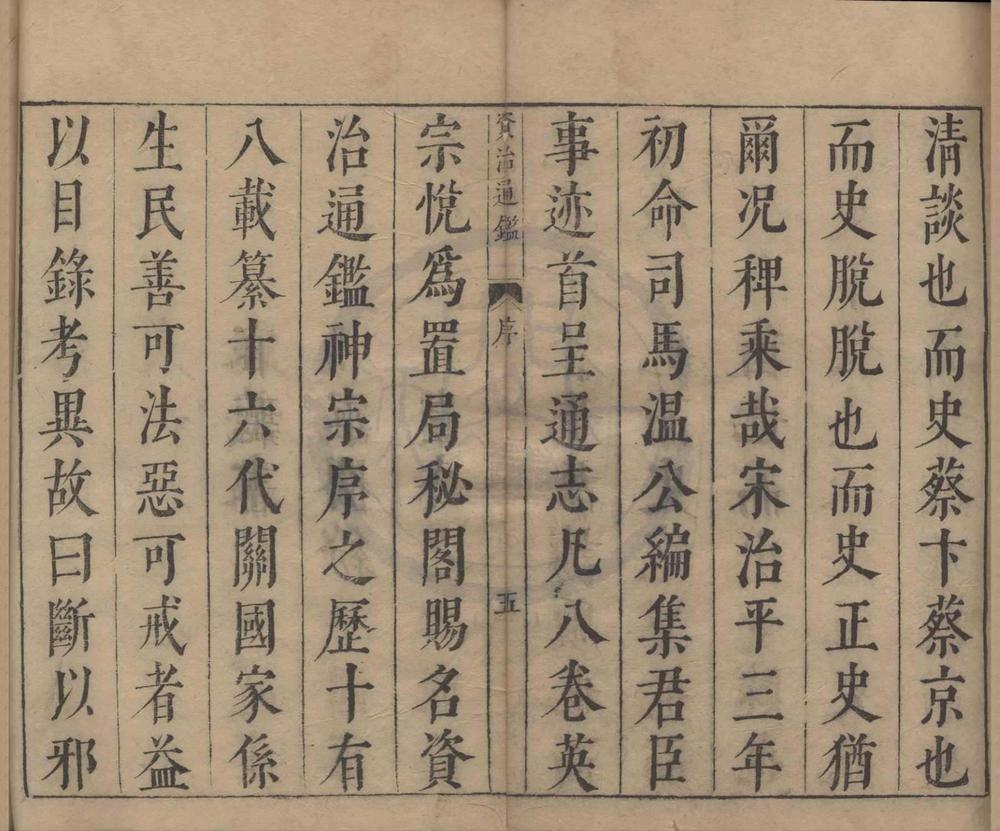 清談也而史蔡卞蔡京也
而史脫脫也而史正史猶
爾況稗乘哉宋治平三年
初命司馬溫公編集君臣
事迹首呈通志凡八卷英
資治通鑑 序 五
宗悅爲置局秘閣賜名資
治通鑑神宗序之歷十有
八載纂十六代關國家係
生民善可法惡可戒者益
以目錄考異故曰斷以邪